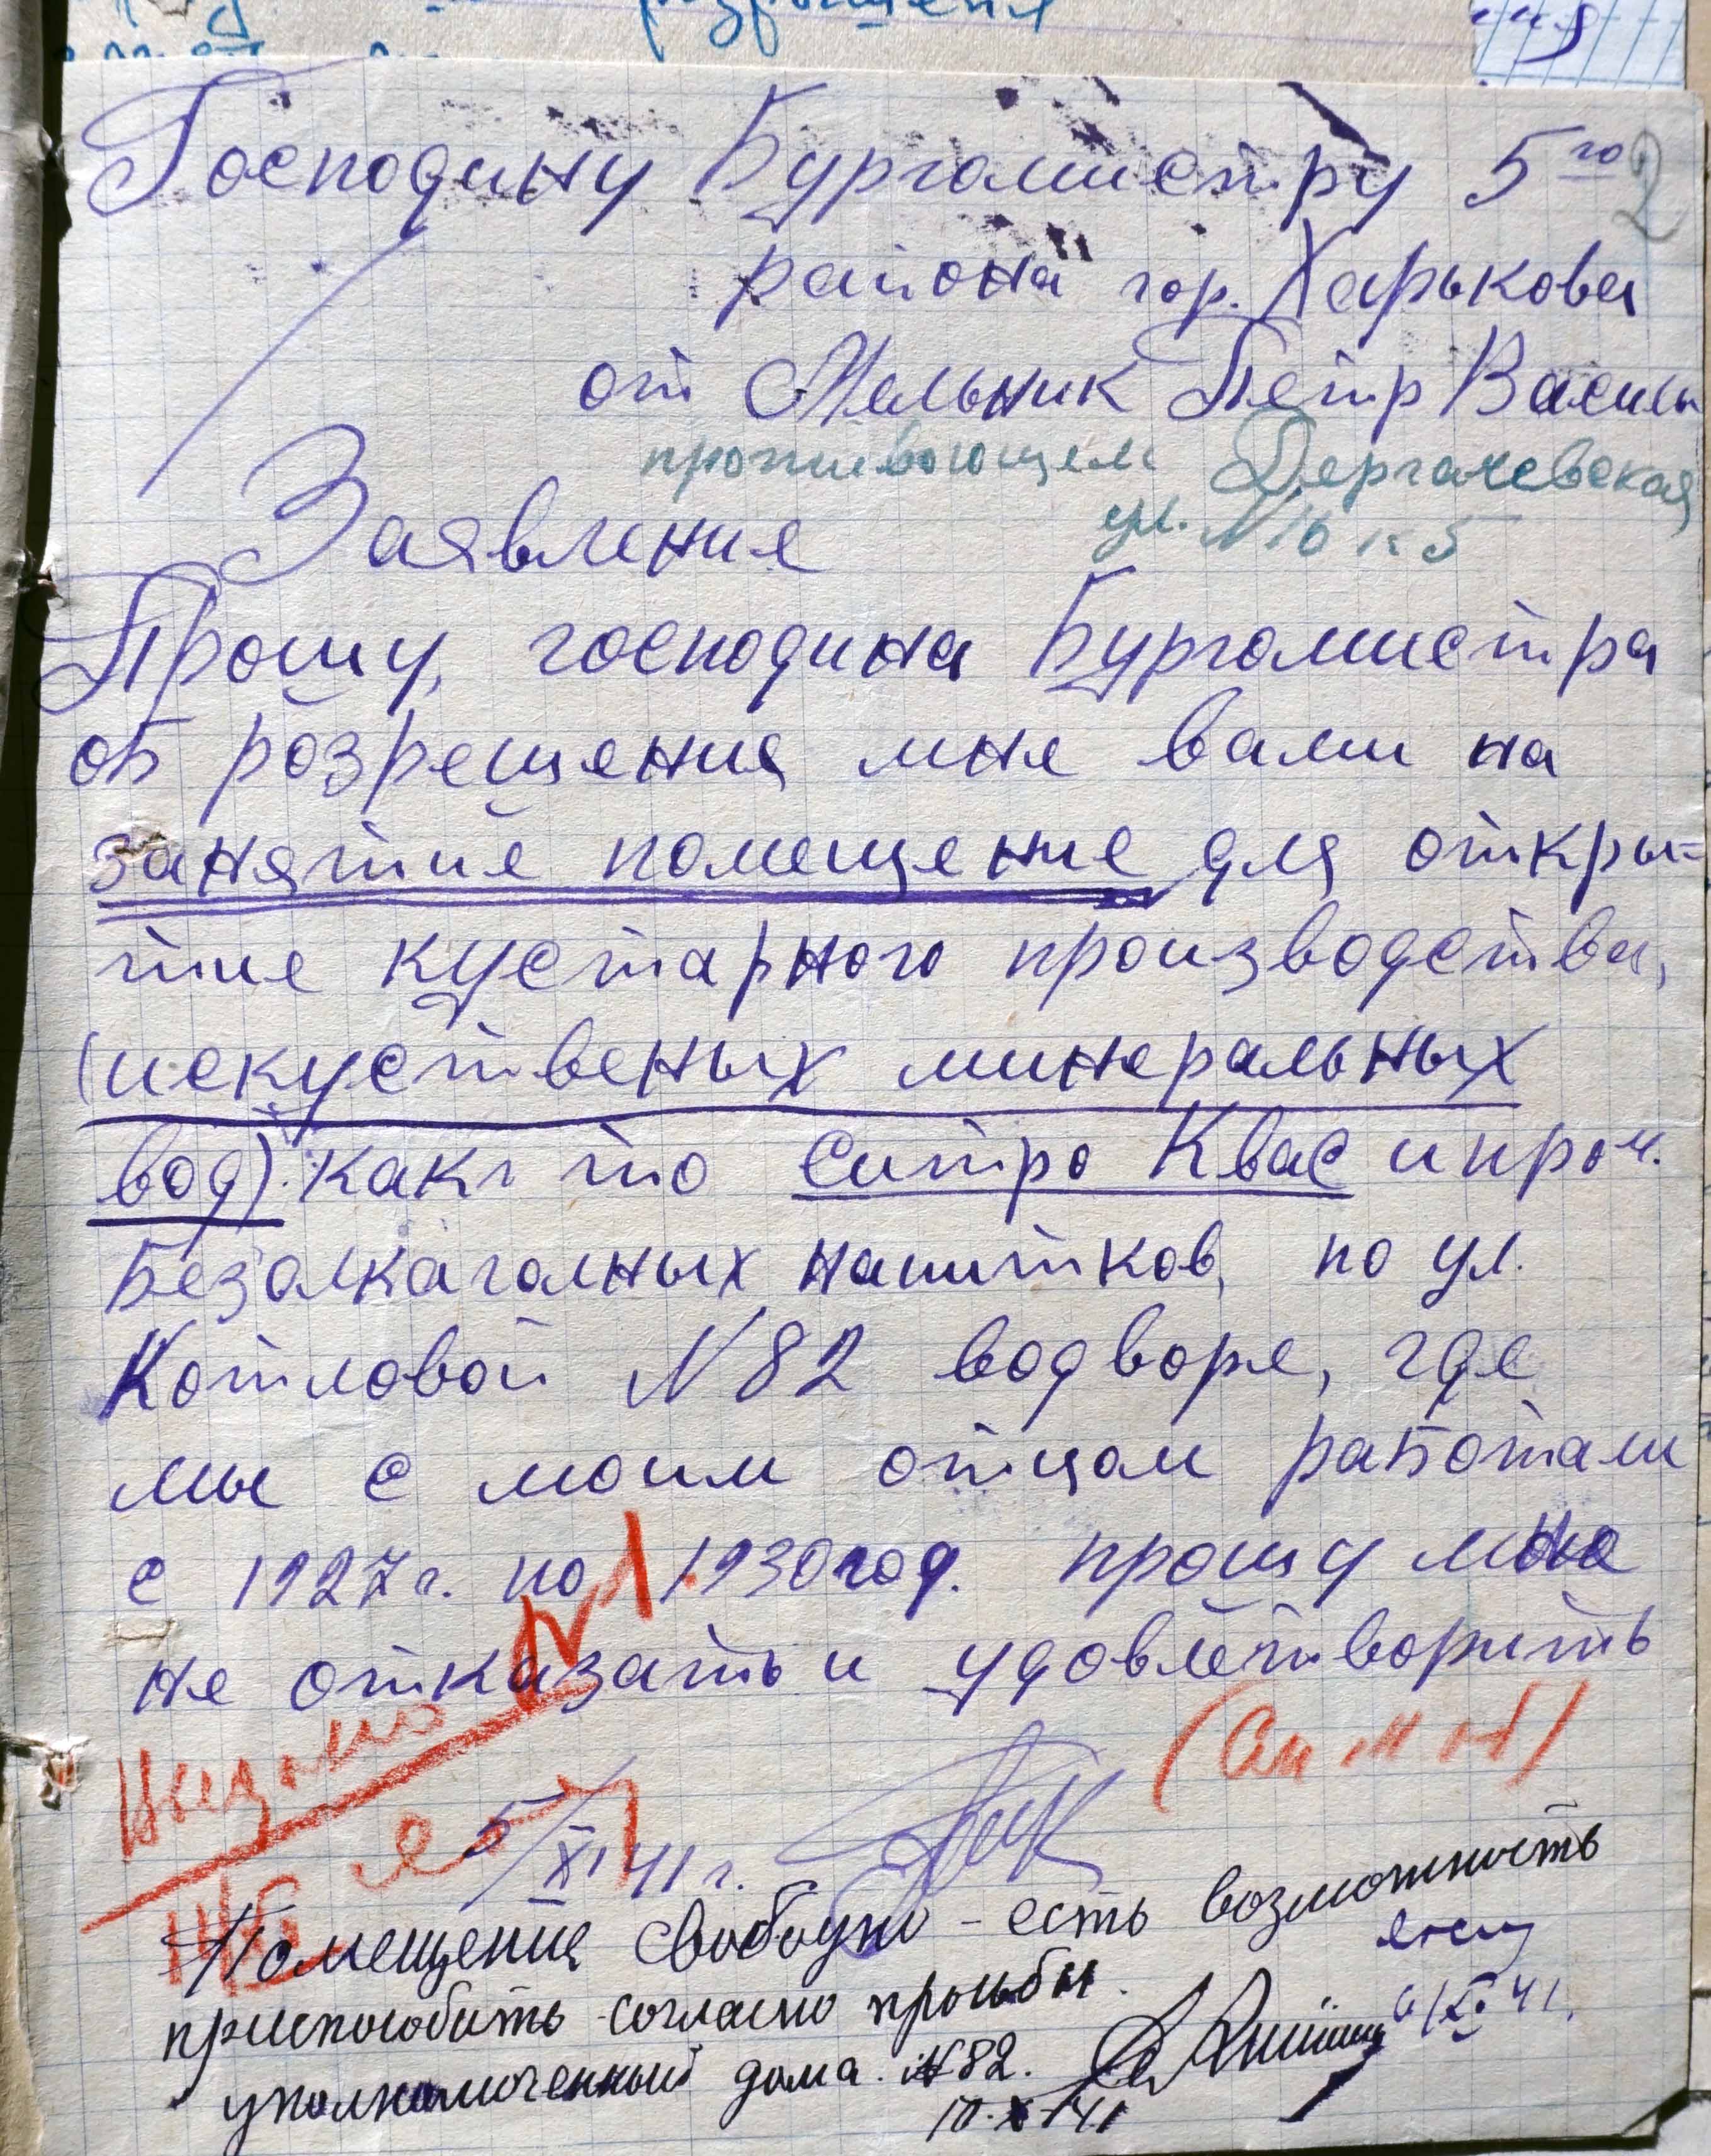 Господину Бургомистру 5го
2
района гор. Харькова
от Мельник Петр Василь
проживающем Дергачевская
ул. N 10 к 5
Заявление
Прошу, господина Бургомистра
об розрешения мне вами на
занятие помещение для откры-
тие кустарного производства,
(искуственых минеральных
вод). как то ситро Квас и проч.
Безалкагольных напитков, по ул.
Котловой N 82 водворе, где
мы с моим отцом работали
с 1927 г. по 1930 год. прошу мне
не отказать и удовлетворить
N 1
5/XI 41 г.
Помещения свободно - есть возможность
приспособить согласно прозьбы.
уполномоченный дома. N 82.
6/XI 41.
10.X 41